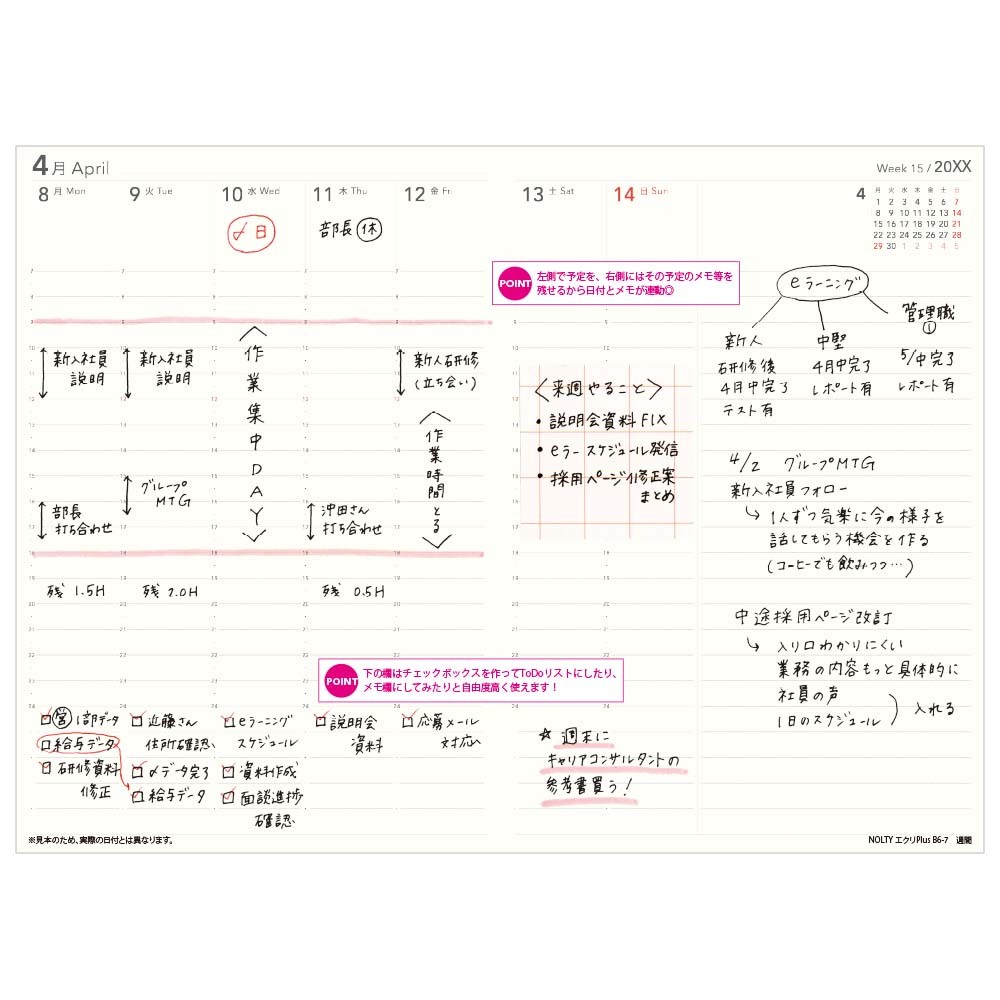 4月 April
Week 15 / 20XX
8 月 Mon
9 火 Tue
10 水 Wed
11 木 Thu
12 金 Fri
13 土 Sat
14 日 Sun
4 月 火 水 木 金 土 日
1 2 3 4 5 6 7
8 9 10 11 12 13 14
15 16 17 18 19 20 21
22 23 24 25 26 27 28
29 30 1 2 3 4 5
〆日
部長 休
POINT
左側で予定を、右側にはその予定のメモ等を
残せるから日付とメモが連動◎
新入社員
説明
部長
打ち合わせ
新入社員
説明
グループ
MTG
作業集中DAY
沖田さん
打ち合わせ
新人研修
(立ち会い)
作業時間とる
残 1.5H
残 2.0H
残 0.5H
<来週やること>
・説明会資料FIX
・eラー スケジュール発信
・採用ページ修正案
まとめ
eラーニング
新人
研修後
4月中完了
テスト有
中堅
4月中完了
レポート有
管理職
①
5/中完了
レポート有
4/2 グループMTG
新入社員フォロー
↳ 1人ずつ気楽に今の様子を
話してもらう機会を作る
(コーヒーでも飲みつつ…)
中途採用ページ改訂
↳ 入り口わかりにくい
業務の内容もっと具体的に
社員の声
1日のスケジュール
入れる
POINT
下の欄はチェックボックスを作ってToDoリストにしたり、
メモ欄にしてみたりと自由度高く使えます!
営1部データ
給与データ
研修資料
修正
近藤さん
住所確認
〆データ完了
給与データ
eラーニング
スケジュール
資料作成
面談進捗
確認
説明会
資料
応募メール
対応
☆ 週末に
キャリアコンサルタントの
参考書買う!
※見本のため、実際の日付とは異なります。
NOLTY エクリPlus B6-7 週間